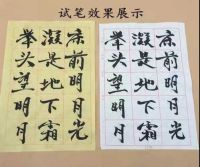 试笔效果展示
床前明月光
疑是地下霜
举头望明月
床前明月光
疑是地下霜
举头望明月